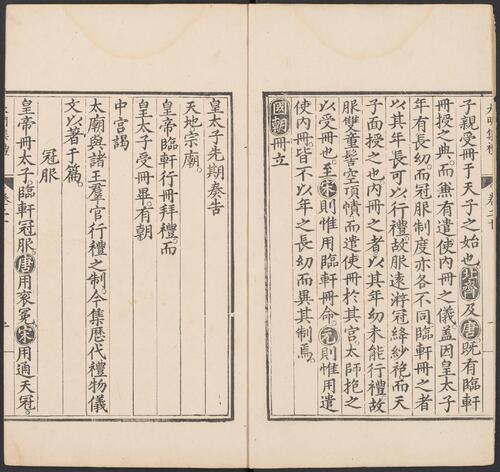 子親受冊于天子之始也北齊及唐既有臨軒
冊授之典而無有遣使內冊之儀蓋因皇太子
年有長幼而冠服制度亦各不同臨軒冊之者
以其年長可以行禮故服遠遊冠絳紗袍而天
子面授之也內冊之者以其年幼未能行禮故
服雙童髻空頂幘而遣使冊於其宮太師抱之
以受冊也至宋則惟用臨軒冊命元則惟用遣
使內冊皆不以年之長幼而異其制焉
國朝冊立
皇太子先期奏告
天地宗廟
皇帝臨軒行冊拜禮而
皇太子受冊畢有朝
中宮謁
太廟與諸王羣官行禮之制今集歷代禮物儀
文以著于篇
冠服
皇帝冊太子臨軒冠服唐用衮冕宋用通天冠